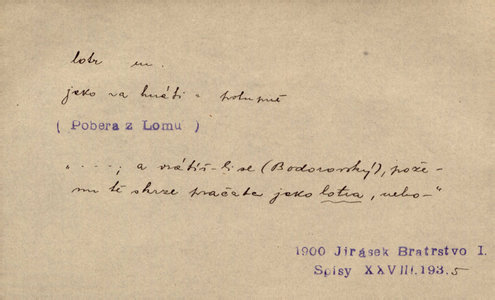 lotr m.
jako na hnáti = potupně
( Pobera z Lomu )
"----; a vrátíš-li se (Bodorovský!), pože-
nu tě skrze pračata jako lotra, nebo-"
1900 Jirásek Bratrstvo I.
Spisy XXVIII.193.5